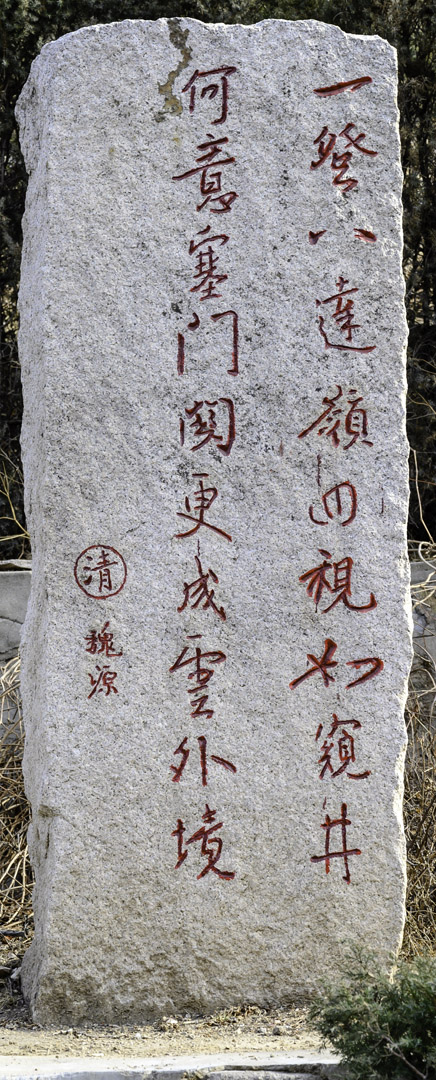 一登八達嶺回視如窺井
何意塞門関更成雲外境
清
魏源